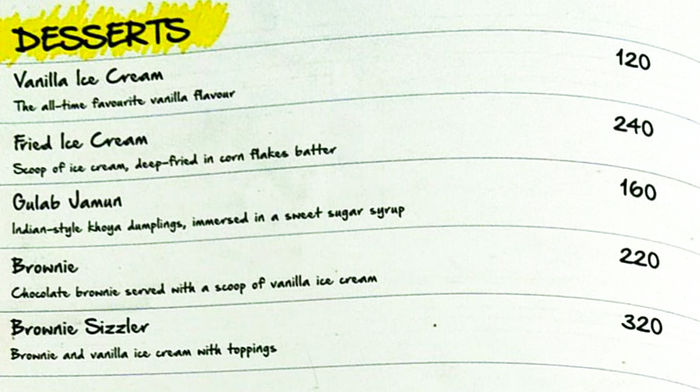 DESSERTS
Vanilla Ice Cream 120
The all-time favourite vanilla flavour
Fried Ice Cream 240
Scoop of ice cream, deep-fried in corn flakes batter
Gulab Jamun 160
Indian-style khoya dumplings, immersed in a sweet sugar syrup
Brownie 220
Chocolate brownie served with a scoop of vanilla ice cream
Brownie Sizzler 320
Brownie and vanilla ice cream with toppings